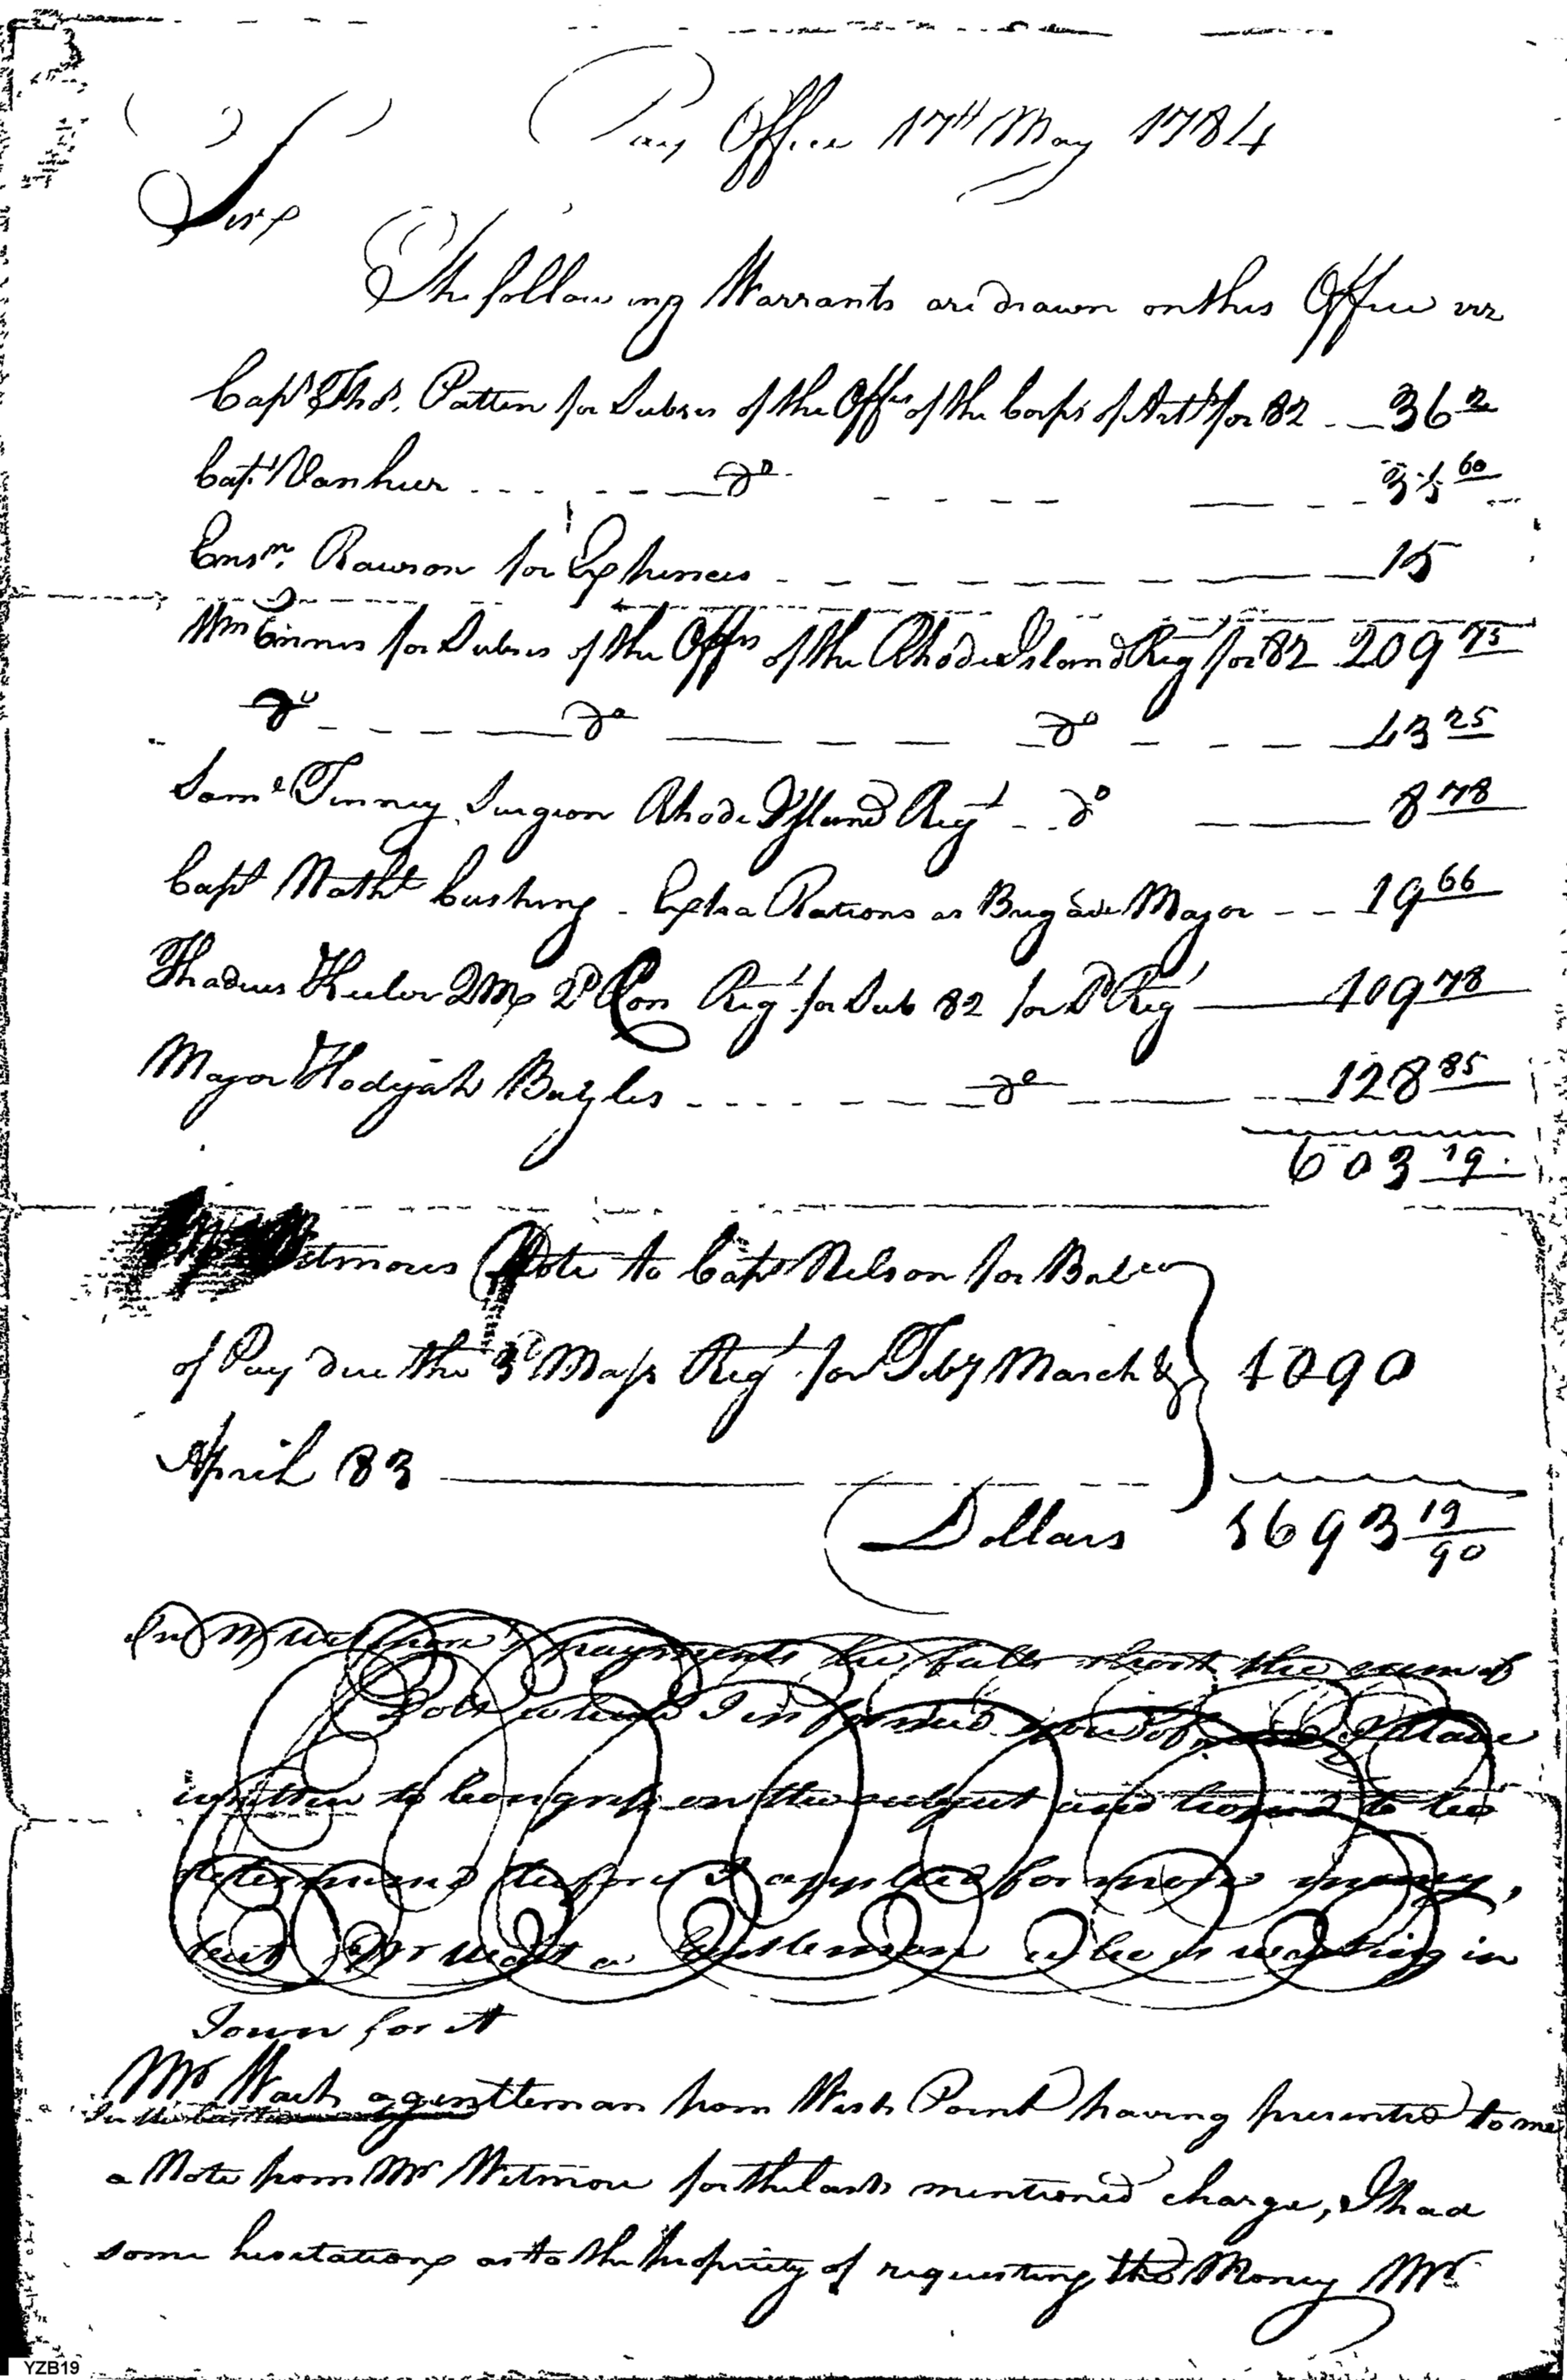 Pay Office 17th May 1784
Sir
The following Warrants are drawn on this Office viz
Capt Thos. Patten for Subsis of the Offrs of the Corps of Arty for 82 36 2
Capt Vanhuer do 31 60
Ensn. Rawson for Expences 15
Wm Ennis for Subsis of the Offrs of the Rhode Island Regt for 82 209 75
do do do 43 25
Saml Tenney Surgeon Rhode Island Regt do 8 78
Capt Nathl Cushing Extra Rations as Brigade Major 19 66
Thadeus Keeler QMr 2d Con Regt for Sub 82 for Do Regt 109 78
Major Hodijah Baylies do 128 85
603 19
Witmores Note to Capt Nelson for Balce
of Pay due the 3d Mass Regt for Feby March & 1090
April 83
Dollars 1693 19/90
In Mr payments he falls short the sum of
Dolls which I informed you of I have
written to Congress on the subject and hoped to be
determined before I applied for more money,
but Mr a Gentleman who is waiting in
Town for it
Mr a gentleman from West Point having presented to me
In the
a Note from Mr Witmore for the last mentioned charge, I had
some hesitation as to the propriety of requesting the Money Mr
YZB19